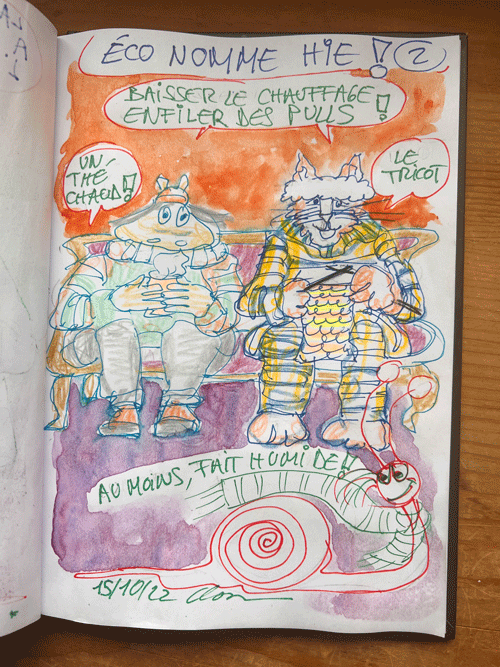 ÉCO NOMME HIE ! 2
BAISSER LE CHAUFFAGE
ENFILER DES PULLS !
UN
THÉ
CHAUD !
LE
TRICOT
AU MOINS, FAIT HUMIDE !!
15/10/22